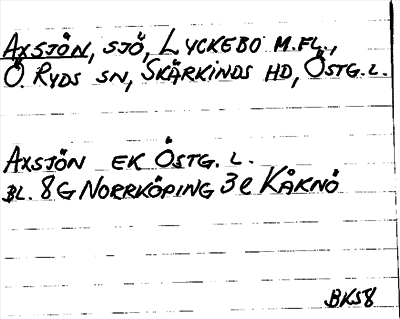 AXSJÖN, SJÖ, LYCKEBO M.FL.,
Ö. RYDS SN, SKÄRKINDS HD, ÖSTG. L.
AXSJÖN EK ÖSTG. L.
BL. 8G NORRKÖPING 3e KÅKNÖ
BKS8